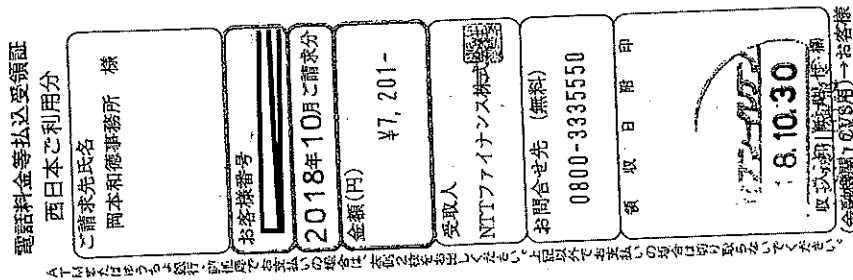 電話料金等払込受領証
西日本ご利用分
ご請求先氏名
岡本和德事務所 様
お客様番号
2018年10月ご請求分
金額(円)
¥7,201-
受取人
NTTファイナンス株式会社
お問合せ先 (無料)
0800-3335550
領収日附印
8.10.30
(金融機関・CVS用)→お客様
ATMまたはゆうちょ銀行・郵便局でお支払いの場合は、左側2枚をお出しください。上記以外でお支払いの場合は切り取らないでください。